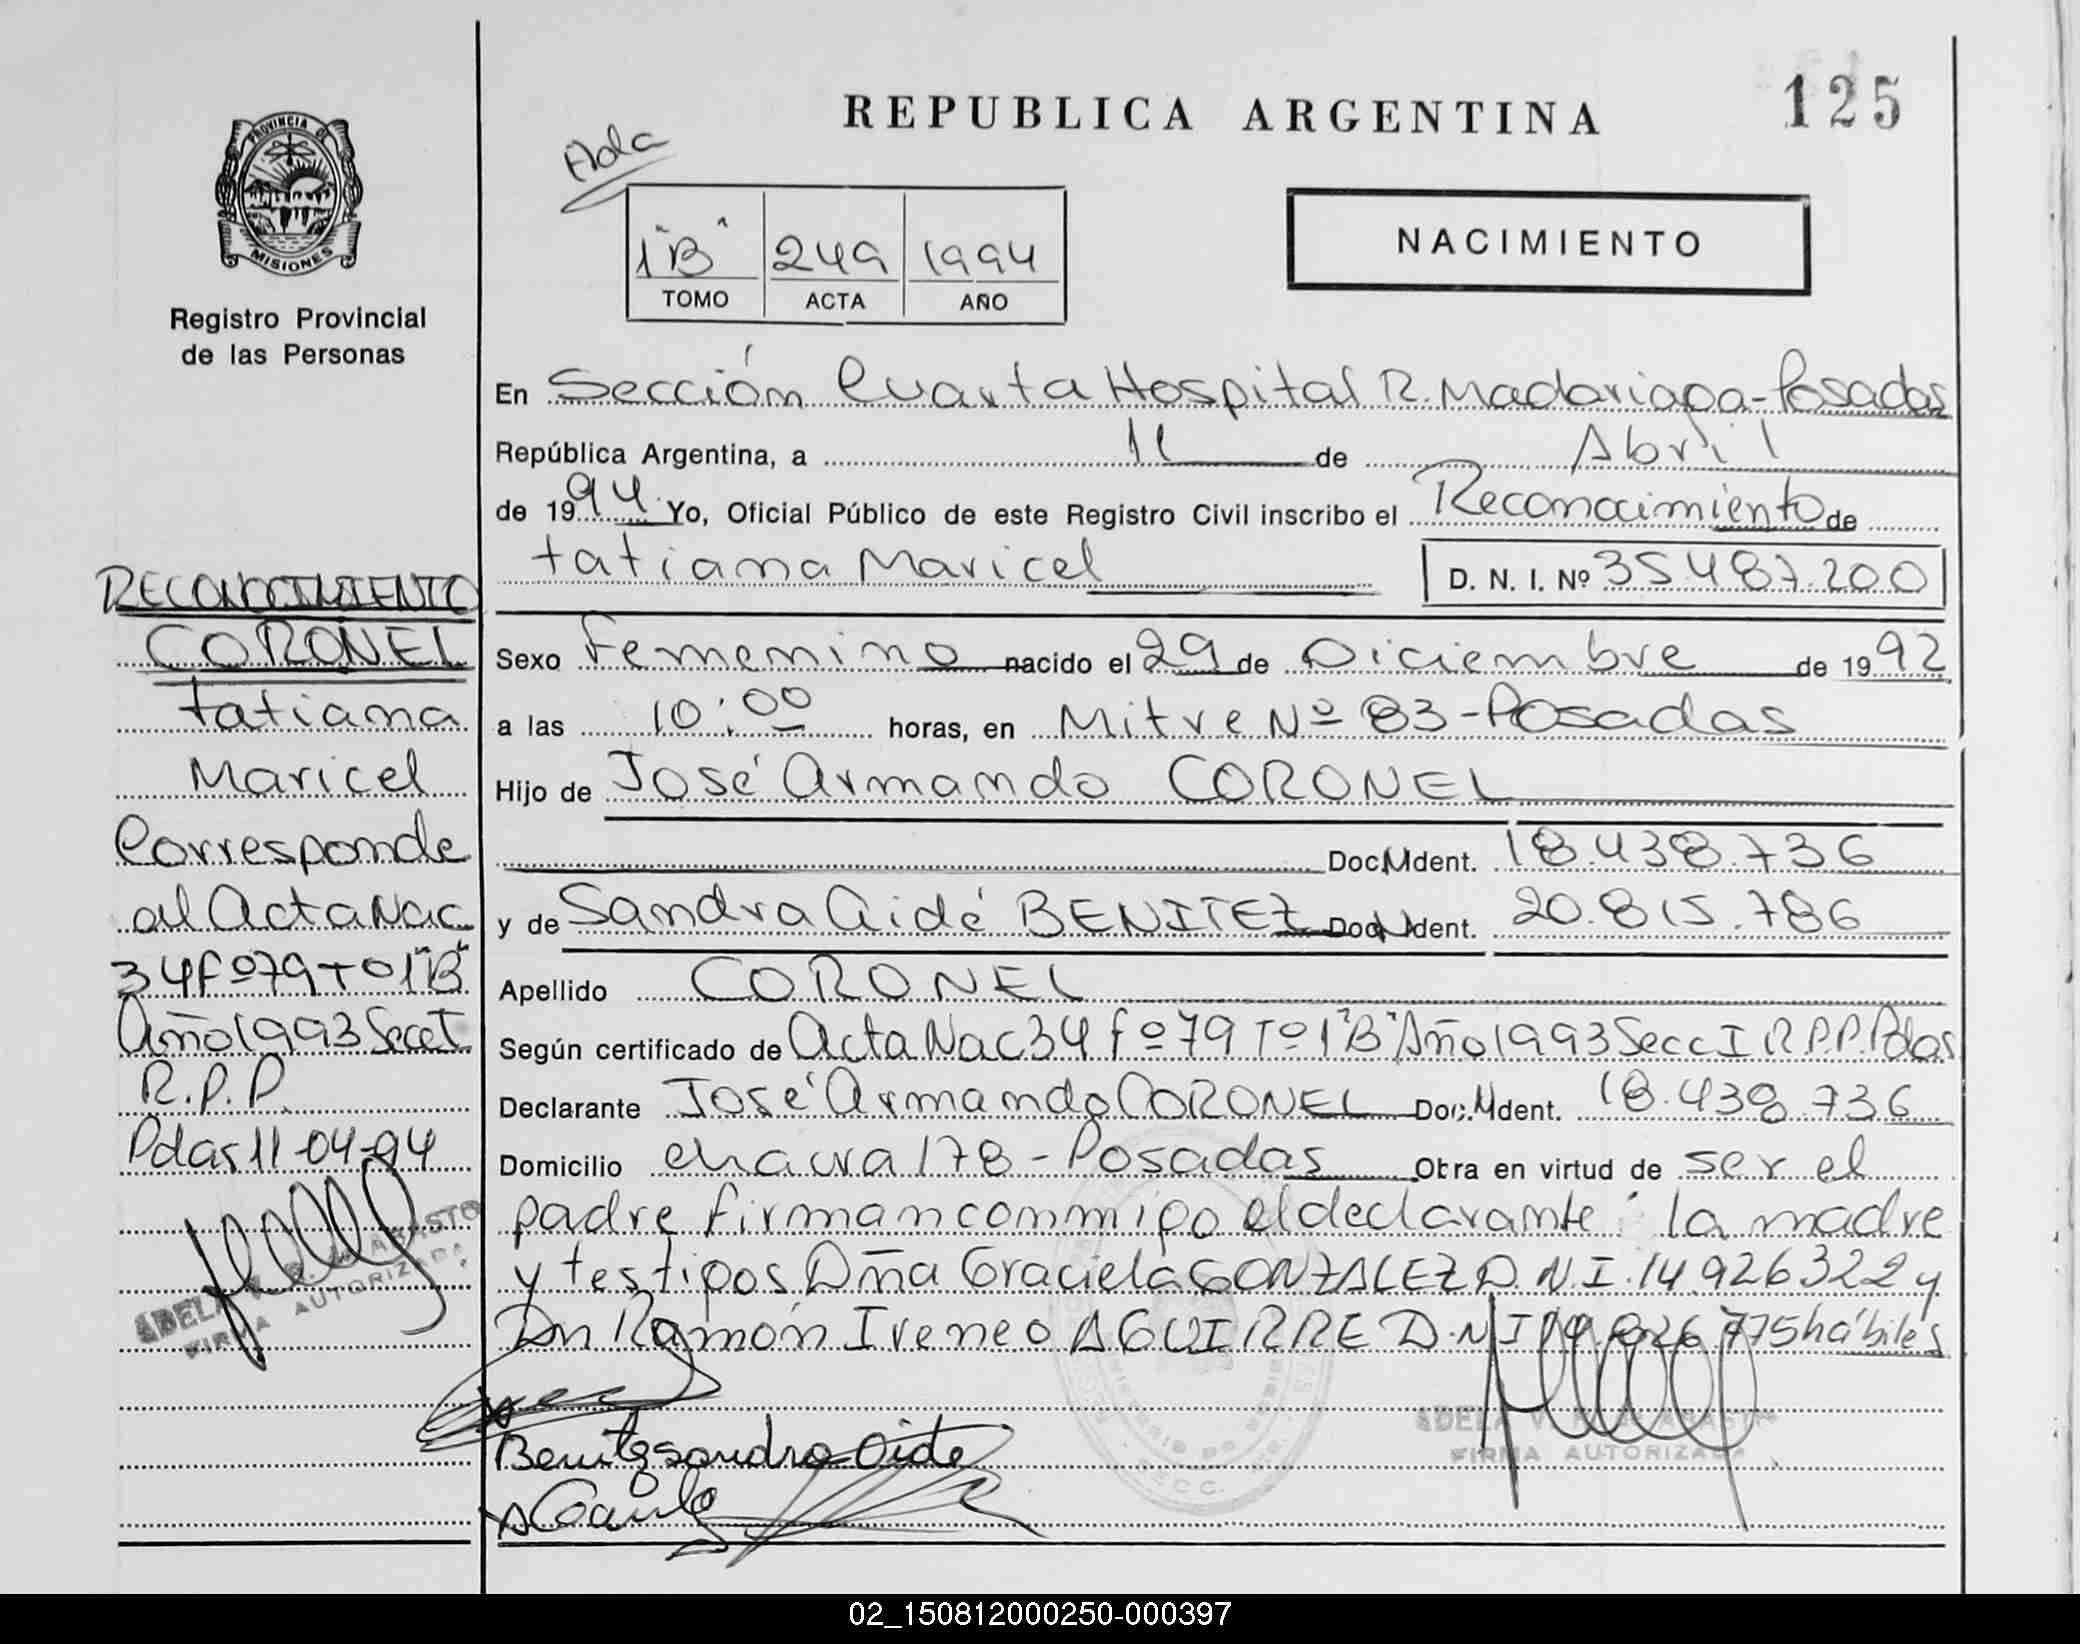 REPUBLICA ARGENTINA
125
PROVINCIA DE
MISIONES
Registro Provincial
de las Personas
1"B" 249 1994
TOMO ACTA AÑO
NACIMIENTO
En Sección Cuarta Hospital R. Madariaga-Posadas
República Argentina, a 11 de Abril
de 1994 Yo, Oficial Público de este Registro Civil inscribo el Reconocimiento de
tatiana Maricel D. N. I. Nº 35.487.200
Sexo Femenino nacido el 29 de Diciembre de 1992
a las 10:00 horas, en Mitre Nº 83-Posadas
Hijo de José Armando CORONEL
Doc. Ident. 18.438.736
y de Sandra Aidé BENITEZ Doc. Ident. 20.815.786
Apellido CORONEL
Según certificado de Acta Nac 34 fº 79 Tº 1"B" Año 1993 Secc I R.P.P. Pdas
Declarante José Armando CORONEL Doc. Ident. 18.438.736
Domicilio chacra 178-Posadas Obra en virtud de ser el
padre firman conmigo el declarante la madre
y testigos Dña Graciela GONZALEZ D.N.I. 14.926322 y
Dn Ramón Ireneo AGUIRRE D.N.I 775 hábiles
RECONOCIMIENTO
CORONEL
tatiana
Maricel
Corresponde
al Acta Nac
34 fº 79 Tº 1"B"
Año 1993 Secc I
R.P.P.
Pdas 11-04-94
ADELA
FIRMA AUTORIZADA
Benitez sandra aide
ADELA V.
FIRMA AUTORIZADA
SECC.
02_150812000250-000397